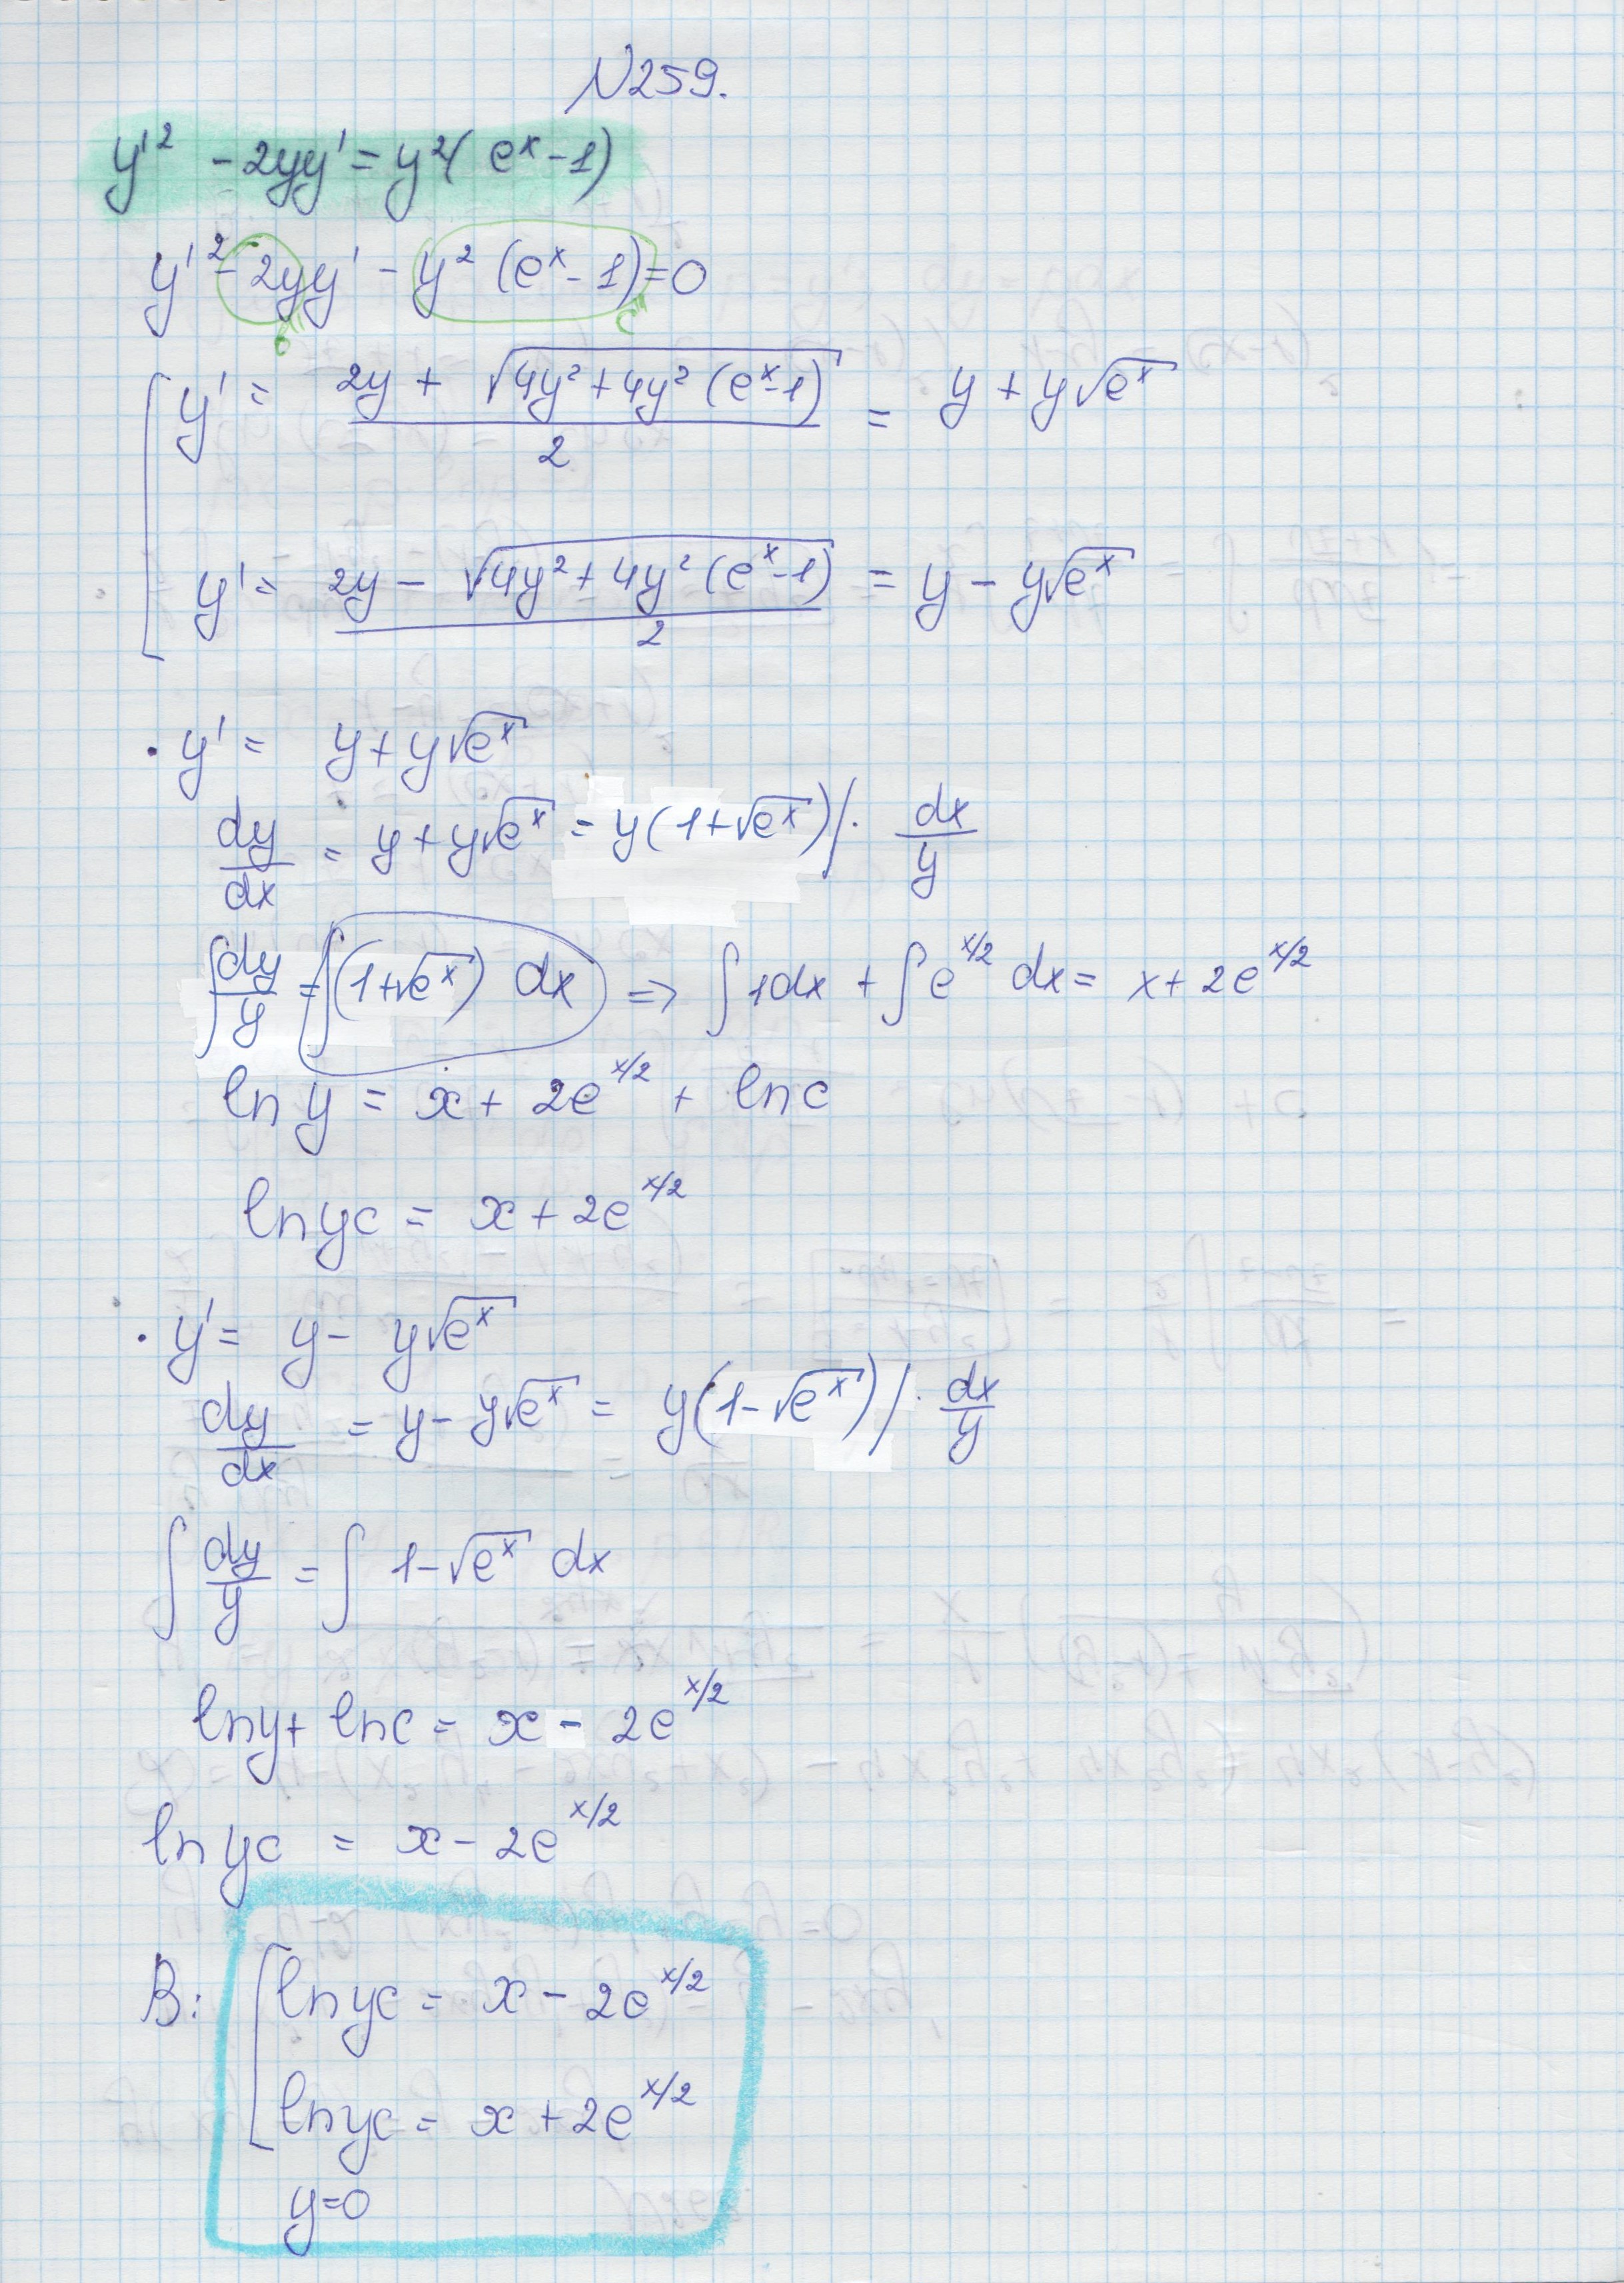 N259.
y'² - 2yy' = y²(eˣ - 1)
y'² - 2yy' - y²(eˣ - 1) = 0
"b" "c"
[ y' = (2y + √(4y² + 4y²(eˣ - 1)))/2 = y + y√eˣ
y' = (2y - √(4y² + 4y²(eˣ - 1)))/2 = y - y√eˣ
· y' = y + y√eˣ
dy/dx = y + y√eˣ = y(1 + √eˣ) / · dx/y
∫ dy/y = ∫(1 + √eˣ) dx ⇒ ∫1dx + ∫e^(x/2) dx = x + 2e^(x/2)
ln y = x + 2e^(x/2) + ln c
ln yc = x + 2e^(x/2)
· y' = y - y√eˣ
dy/dx = y - y√eˣ = y(1 - √eˣ) / · dx/y
∫ dy/y = ∫ 1 - √eˣ dx
ln y + ln c = x - 2e^(x/2)
ln yc = x - 2e^(x/2)
В: [ ln yc = x - 2e^(x/2)
ln yc = x + 2e^(x/2)
y = 0